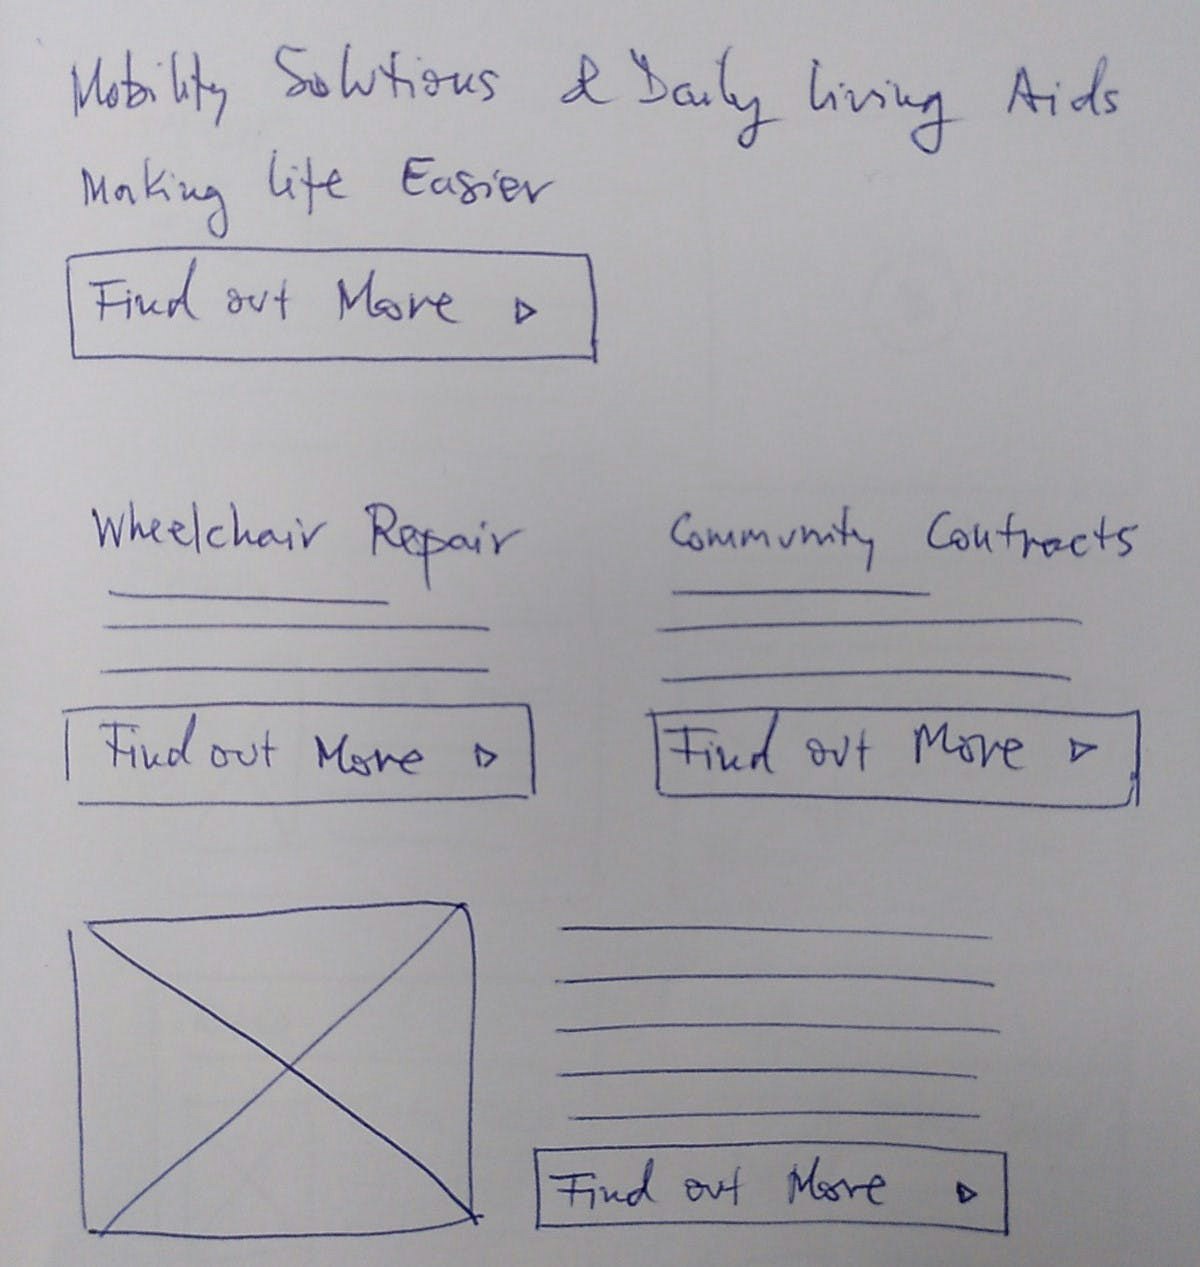 Mobility Solutions & Daily Living Aids
Making Life Easier
Find out More
Wheelchair Repair
Community Contracts
Find out More
Find out More
Find out More